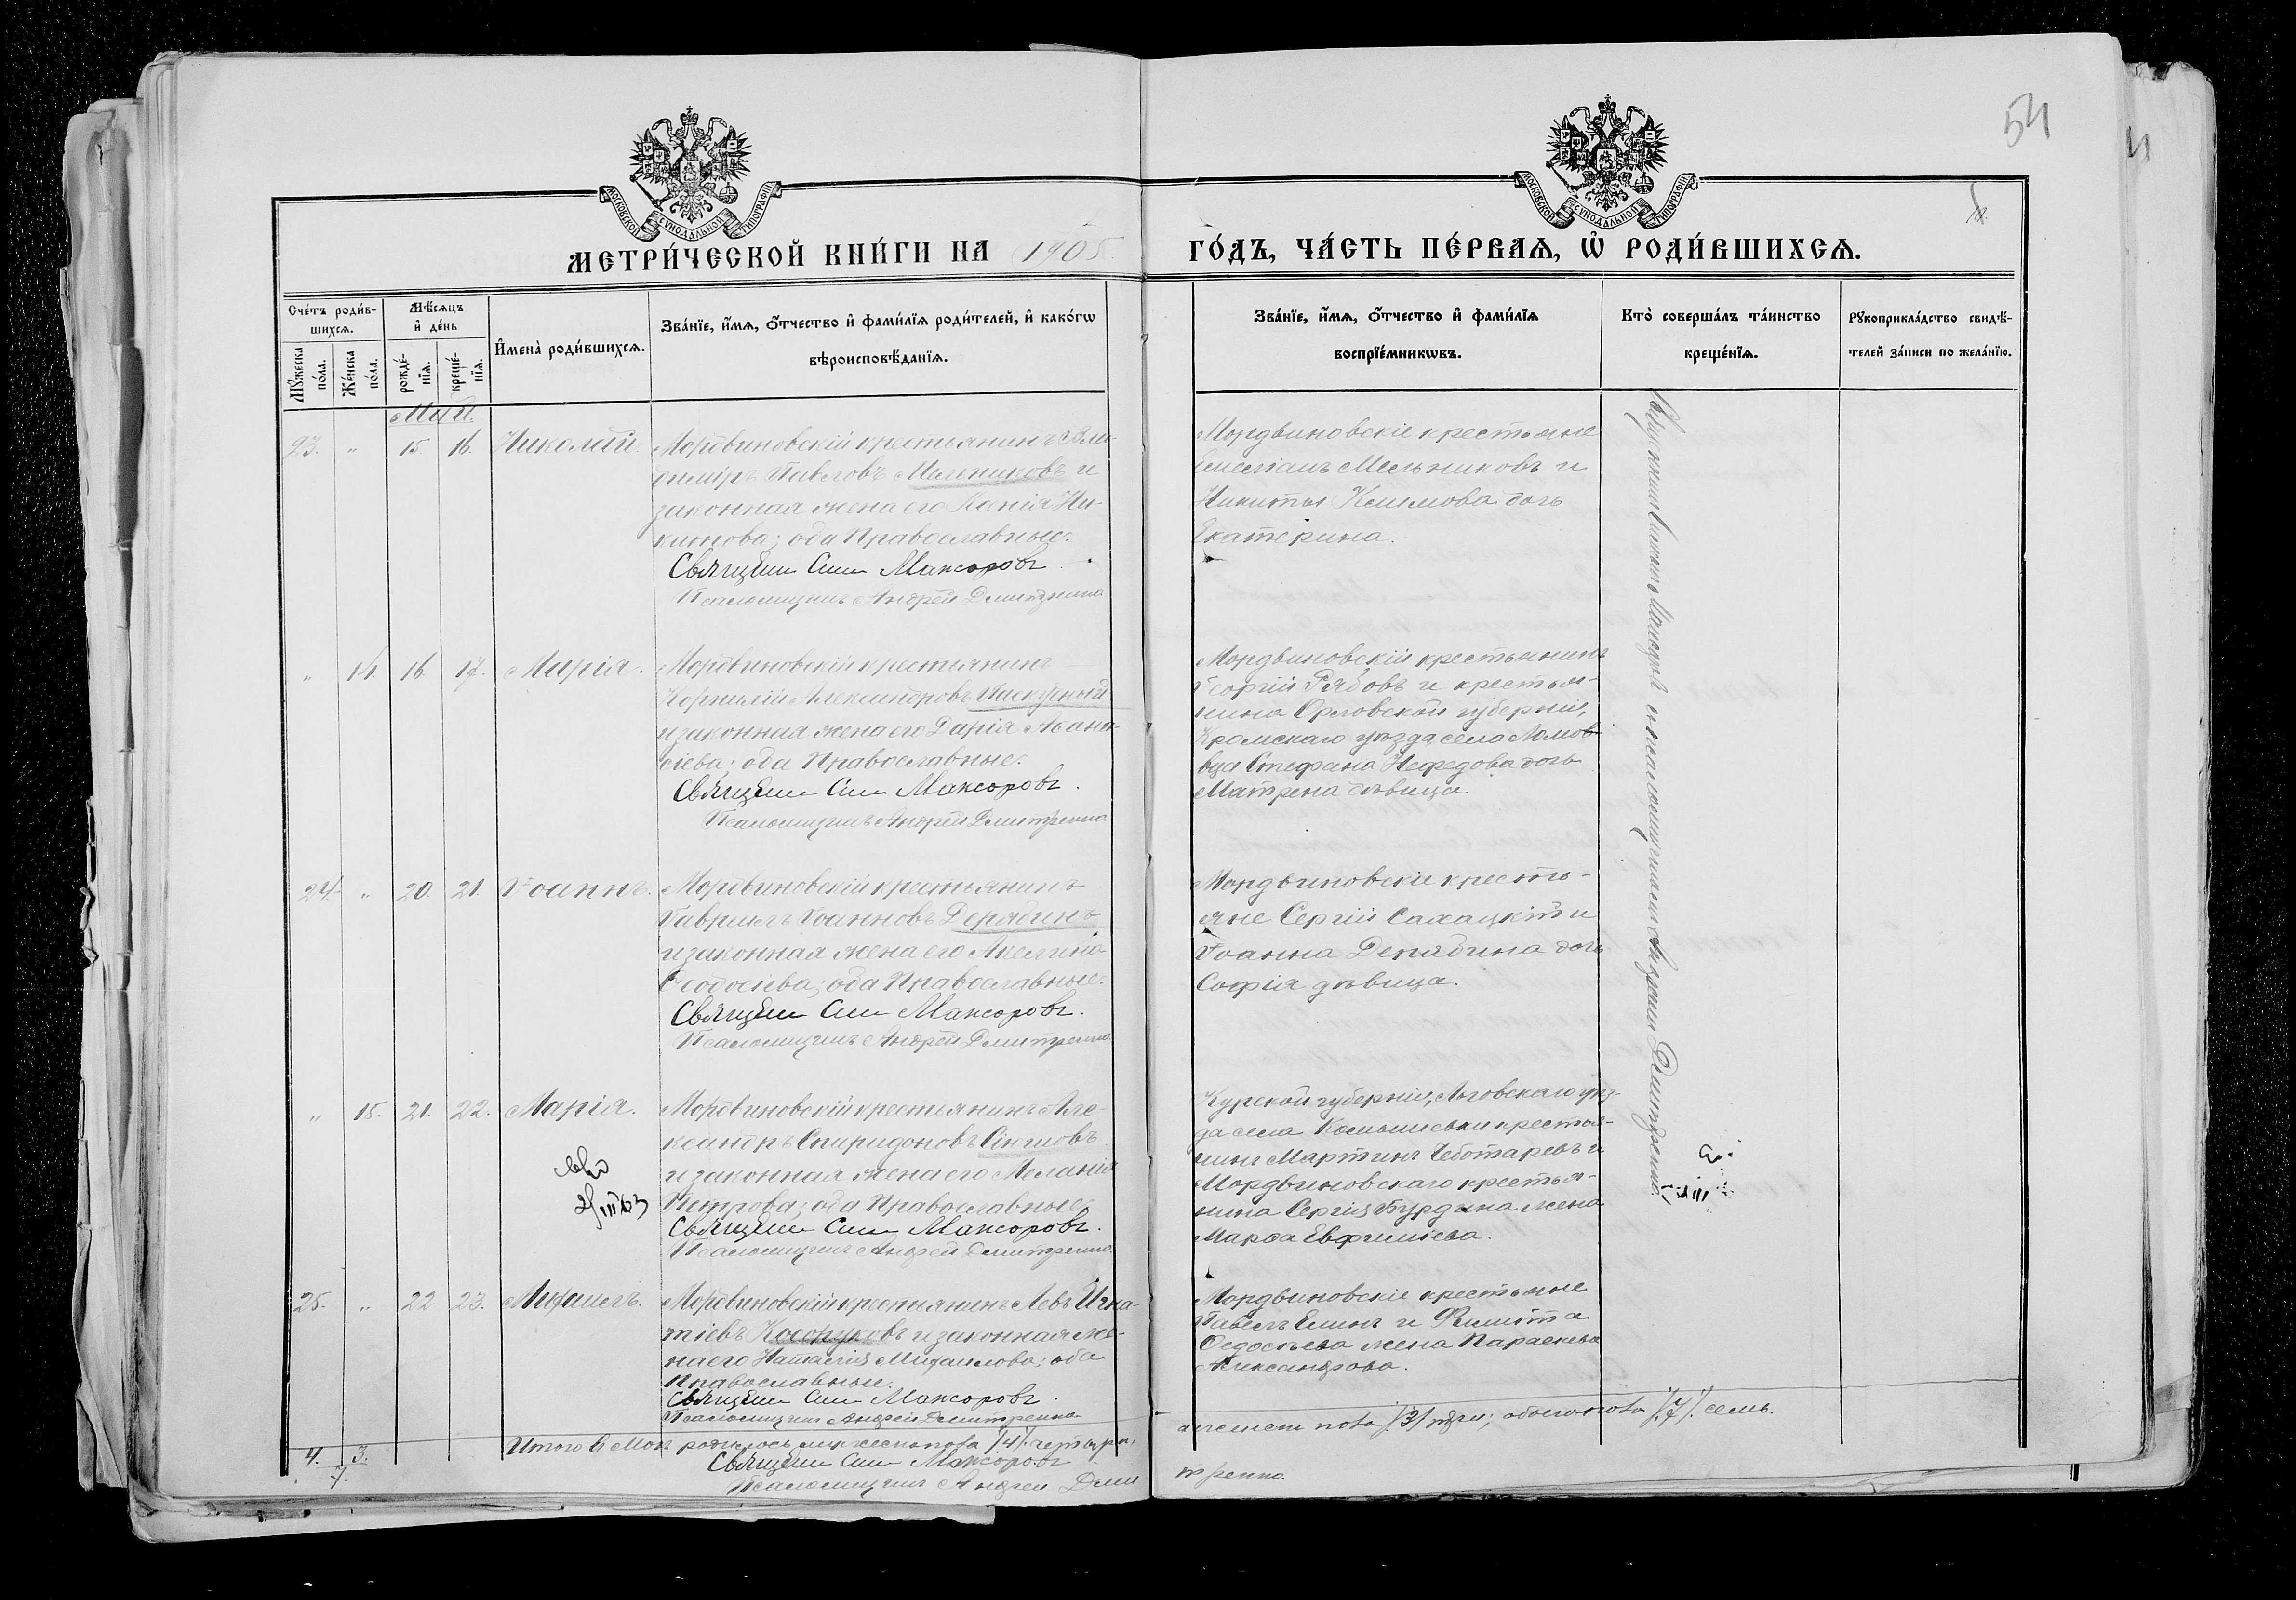 54
МОСКОВСКОЙ СѴНОДАЛЬНОЙ ТИПОГРАФІИ
МОСКОВСКОЙ СѴНОДАЛЬНОЙ ТИПОГРАФІИ
МЕТРИ́ЧЕСКОЙ КНИ́ГИ НА 1905
ГО́ДЪ, ЧА́СТЬ ПЕ́РВАѦ, Ѽ РОДИ́ВШИХСѦ.
Сче́тъ роди́в-
шихсѧ.
Мꙋ́жеска
по́ла.
Же́нска
по́ла.
Мѣ́сѧцъ
и҆ де́нь
рожде́-
нїѧ.
креще́-
нїѧ.
И҆мена̀ роди́вшихсѧ.
Зва́нїе, и҆́мѧ, ѻ҆́тчество и҆ фами́лїѧ роди́телей, и҆ како́гѡ
вѣроисповѣ́данїѧ.
Зва́нїе, и҆́мѧ, ѻ҆́тчество и҆ фами́лїѧ
воспрїе́мникѡвъ.
Кто̀ соверша́лъ та́инство
креще́нїѧ.
Рꙋкоприкла́дство свидѣ́-
телей за́писи по жела́нїю.
Май.
23. " 15. 16. Николай. Мордвиновскій крестьянинъ Вла-
димиръ Павловъ Мельниковъ и
законная жена его Ксенія Ни-
китова; оба Православные.
Священ Сим Максоровъ.
Псаломщикъ Андрей Дмитренко
Мордвиновскіе крестьяне
Емеліанъ Мельниковъ и
Никиты Климова дочь
Екатерина.
" 14. 16. 17. Марія. Мордвиновскій крестьянинъ
Корнилій Александровъ
и законная жена его Дарія Аѳана-
сіева; оба Православные.
Священ Сим Максоровъ.
Псаломщикъ Андрей Дмитренко
Мордвиновскій крестьянинъ
Георгій Рябовъ и крестья-
нина Орловской губерніи,
Кромскаго уѣзда села Ломов-
ца Стефана Нефедова дочь
Матрена дѣвица.
24. " 20. 21. Іоаннъ. Мордвиновскій крестьянинъ
Гавріилъ Іоанновъ Дерябинъ
и законная жена его Акелина
Ѳеодосіева; оба Православные.
Священ Сим Максоровъ.
Псаломщикъ Андрей Дмитренко.
Мордвиновскіе кресть-
яне Сергій и
Іоанна Дерябина дочь
Софія дѣвица.
" 15. 21. 22. Марія. Мордвиновскій крестьянинъ Але-
ксандръ Спиридоновъ
и законная жена его Меланія
Петрова; оба Православные
Священ Сим Максоровъ.
Псаломщикъ Андрей Дмитренко.
Курской губерніи, Льговскаго уѣз-
да села Камышевки крестья-
нинъ Мартинъ Чеботаревъ и
Мордвиновскаго крестья-
нина Сергія Бурдина жена
Марѳа Евфиміева.
25. " 22 23. Михаилъ. Мордвиновскій крестьянинъ Левъ Игна-
тіевъ Косоруковъ и законная же-
на его Наталія Михаилова; оба
Православные.
Священ Сим Максоровъ.
Псаломщикъ Андрей Дмитренко
Мордвиновскіе крестьяне
Павелъ Елинъ и
Ѳедосѣева жена Параскева
Александрова.
Священникъ съ псаломщикомъ Андреемъ Дмитренко.
4. 3.
7.
Итого въ Маѣ родилось мужескаго пола /4/ четыре,
женскаго пола /3/ три; обоего пола /7/ семь.
Священ Сим Максоровъ
Псаломщикъ Андрей Дми
тренко.